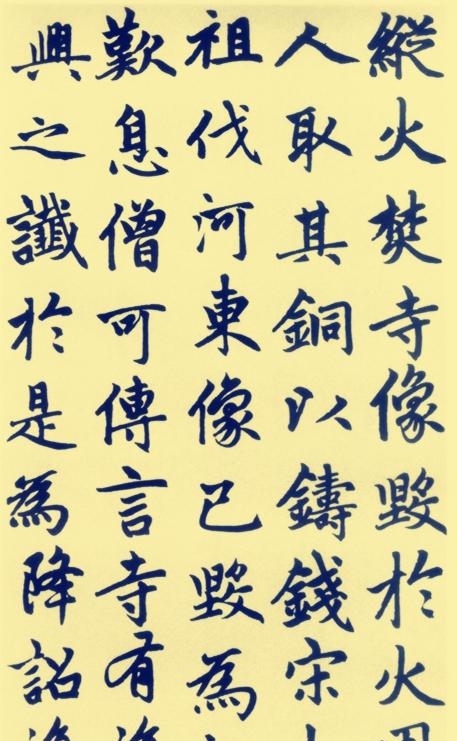 縱火焚寺像毀於火
人取其銅以鑄錢宋
祖伐河東像已毀為
歎息僧可傳言寺有
興之讖於是為降詔